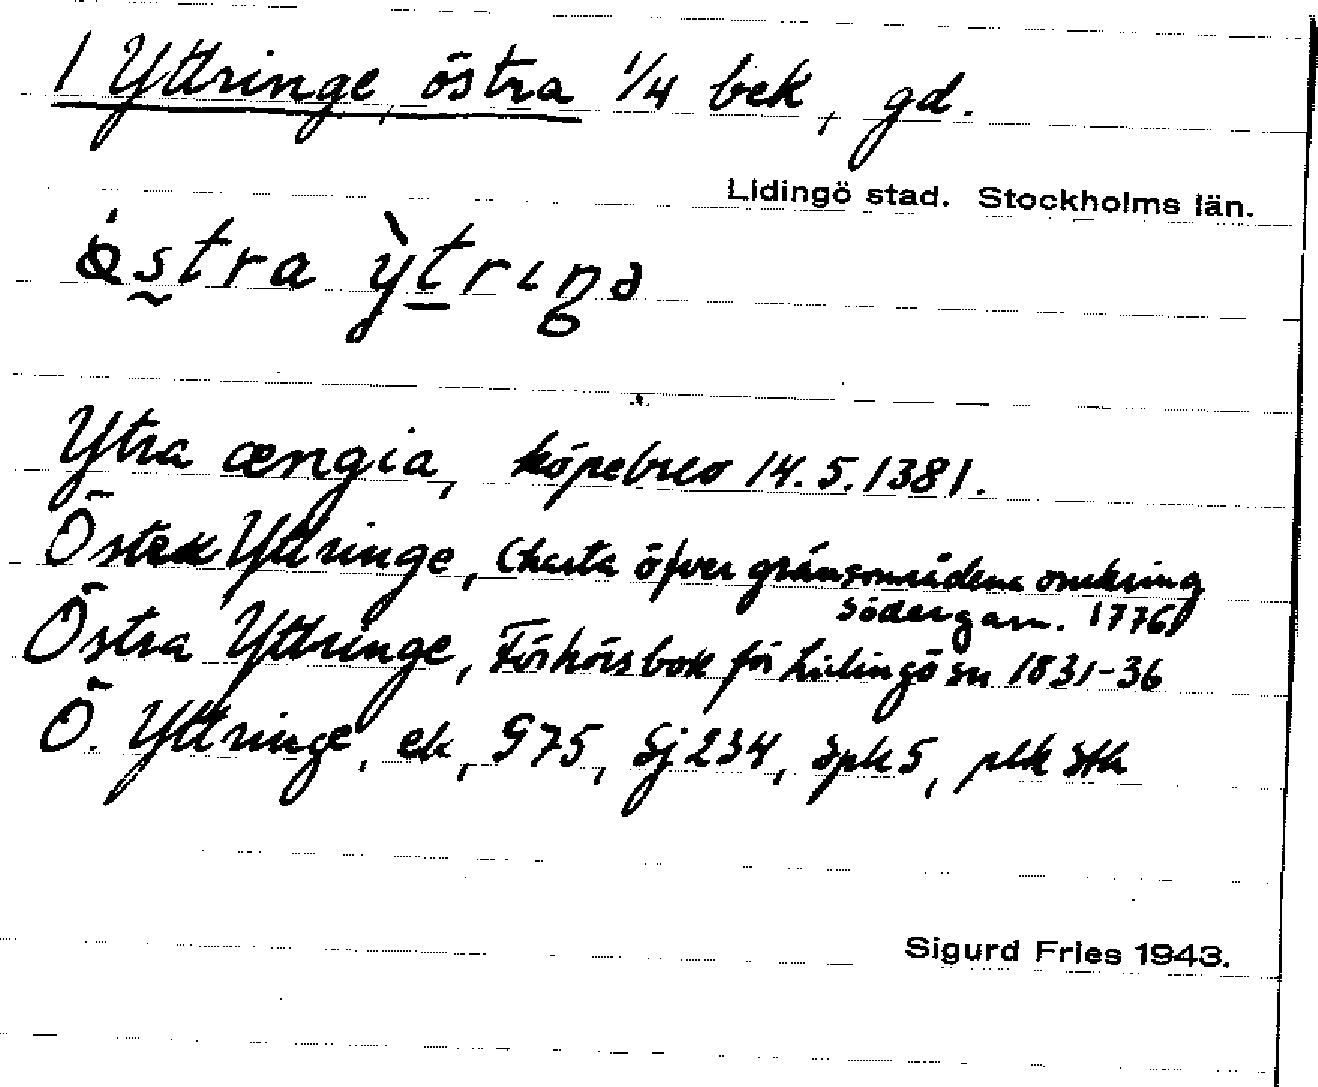 1 Yttringe, östra 1/4 bek, gd.
Lidingö stad. Stockholms län.
östra ỳtrıŋə
Ytra ængia, köpebrev 14.5.1381.
Yttringe, Charta öfver gränsområdena omkring
Södergarn. 1776
Östra Yttringe, Förhörsbok för Lidingö sn 1831-36
Ö. Yttringe, ek, G75, Sj 234, Spk 5, plk Sth
Sigurd Fries 1943.